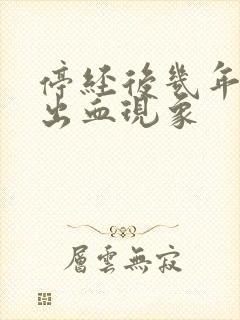 停經後幾年
出血現象
層雲無寂